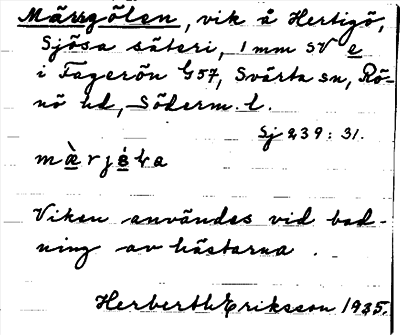 Märrgölen, vik å Hertigö,
Sjösa säteri, 1 mm SV e
i Fågelön G57, Svärta sn, Rö-
nö hd, Söderm. l.
Sj 239:31.
Viken användes vid bad-
ning av hästarna.
Herberth Eriksson 1935.